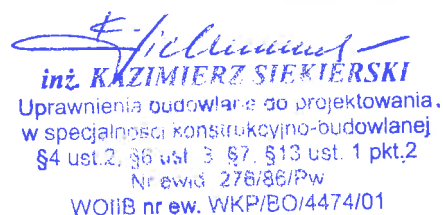 inż. KAZIMIERZ SIEKIERSKI
Uprawnienia budowlane do projektowania
w specjalności konstrukcyjno-budowlanej
§4 ust.2, §6 ust. 3 §7, §13 ust. 1 pkt.2
Nr ewid. 276/86/Pw
WOIIB nr ew. WKP/BO/4474/01